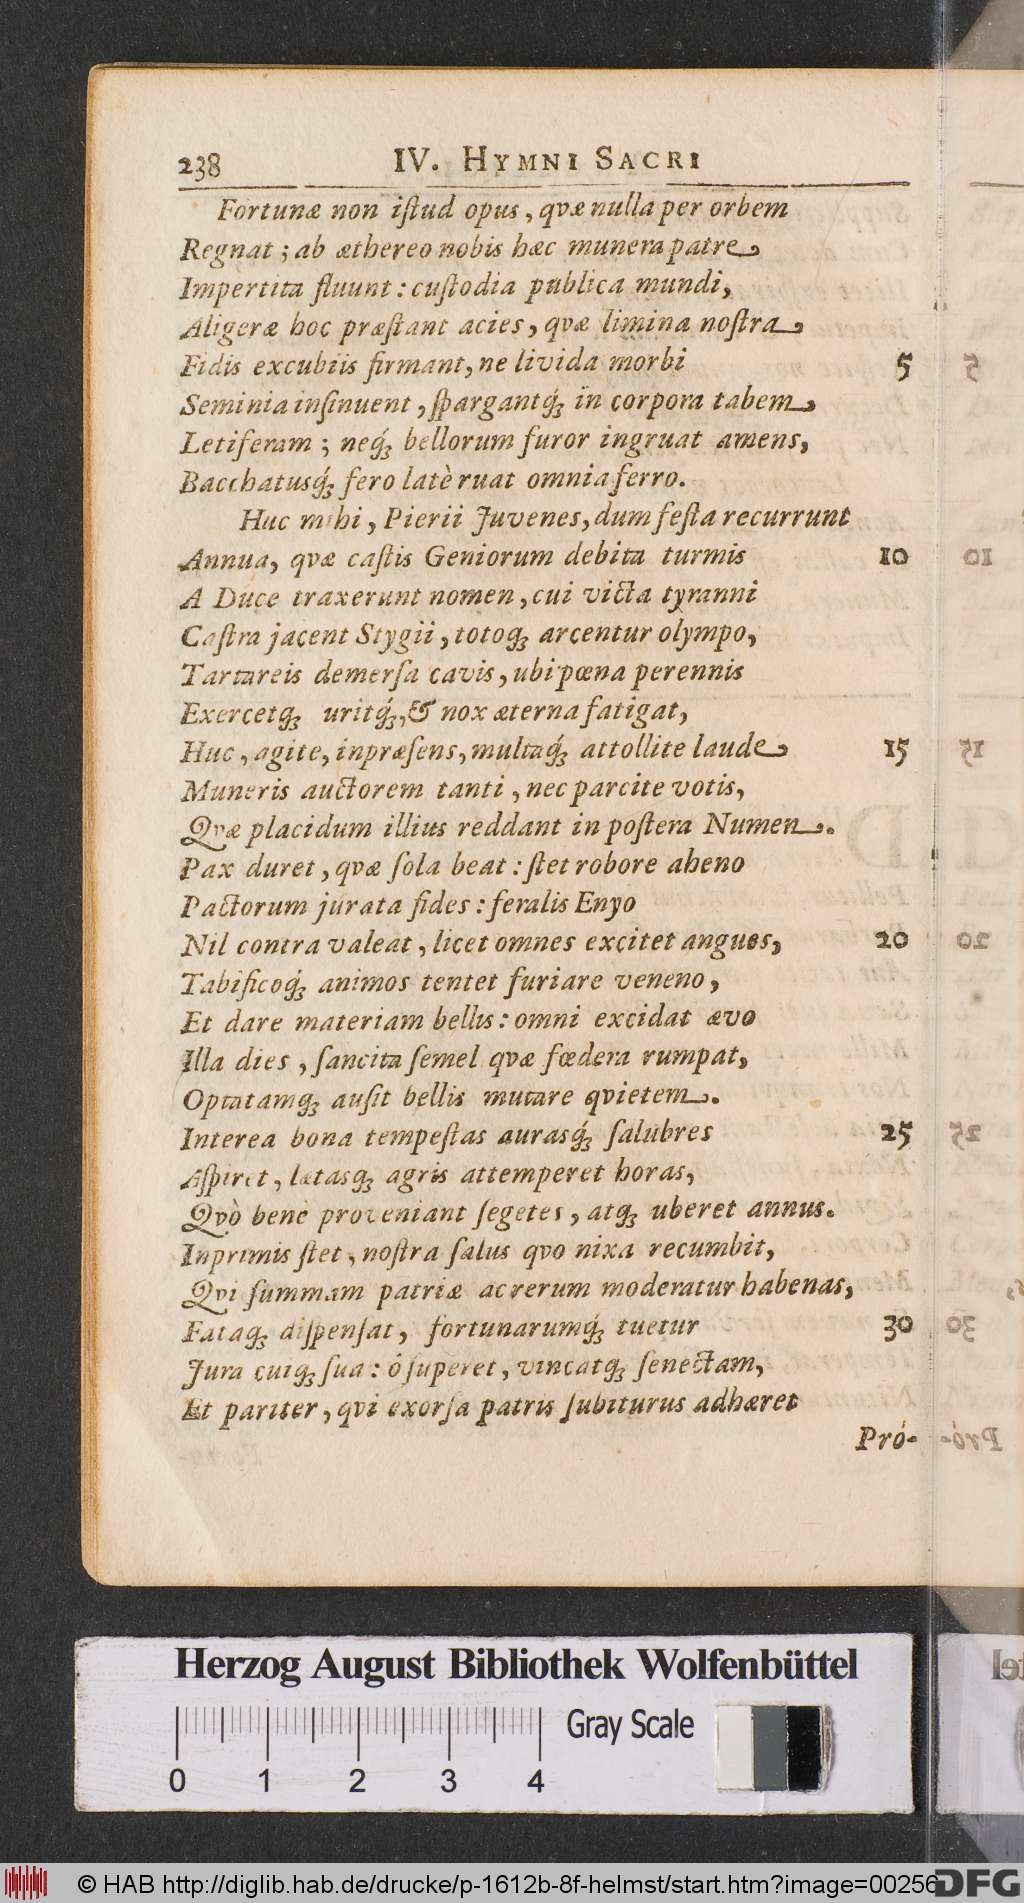 238 IV. HYMNI SACRI
Fortunæ non iſtud opus, qvæ nulla per orbem
Regnat; ab æthereo nobis hæc munera patre
Impertita fluunt: cuſtodia publica mundi,
Aligeræ hoc præſtant acies, qvæ limina noſtra,
Fidis excubiis firmant, ne livida morbi 5
Seminia inſinuent, ſpargantq́ꝫ in corpora tabem,
Letiferam; neq́ꝫ bellorum furor ingruat amens,
Bacchatusq́ꝫ fero latè ruat omnia ferro.
Huc mihi, Pierii Juvenes, dum feſta recurrunt
Annua, qvæ caſtis Geniorum debita turmis 10
A Duce traxerunt nomen, cui victa tyranni
Caſtra jacent Stygii, totoqꝫ arcentur olympo,
Tartareis demerſa cavis, ubi pœna perennis
Exercetqꝫ uritq́ꝫ, & nox æterna fatigat,
Huc, agite, inpræſens, multaq́ꝫ attollite laude 15
Muneris auctorem tanti, nec parcite votis,
Qvæ placidum illius reddant in poſtera Numen.
Pax duret, qvæ ſola beat: ſtet robore aheno
Pactorum jurata fides: feralis Enyo
Nil contra valeat, licet omnes excitet angues, 20
Tabificoq́ꝫ animos tentet furiare veneno,
Et dare materiam bellis: omni excidat ævo
Illa dies, ſancita ſemel qvæ fœdera rumpat,
Optatamqꝫ auſit bellis mutare qvietem.
Interea bona tempeſtas aurasq́ꝫ ſalubres 25
Aſpiret, lætasqꝫ agris attemperet horas,
Qvò benè proveniant ſegetes, atqꝫ uberet annus.
Inprimis ſtet, noſtra ſalus qvo nixa recumbit,
Qvi ſummam patriæ ac rerum moderatur habenas,
Fataqꝫ diſpenſat, fortunarumq́ꝫ tuetur 30
Jura cuiqꝫ ſua: ô ſuperet, vincatqꝫ ſenectam,
Et pariter, qvi exorſa patris ſubiturus adhæret
Pró-
Herzog August Bibliothek Wolfenbüttel
Gray Scale
0 1 2 3 4
© HAB http://diglib.hab.de/drucke/p-1612b-8f-helmst/start.htm?image=00256
DFG